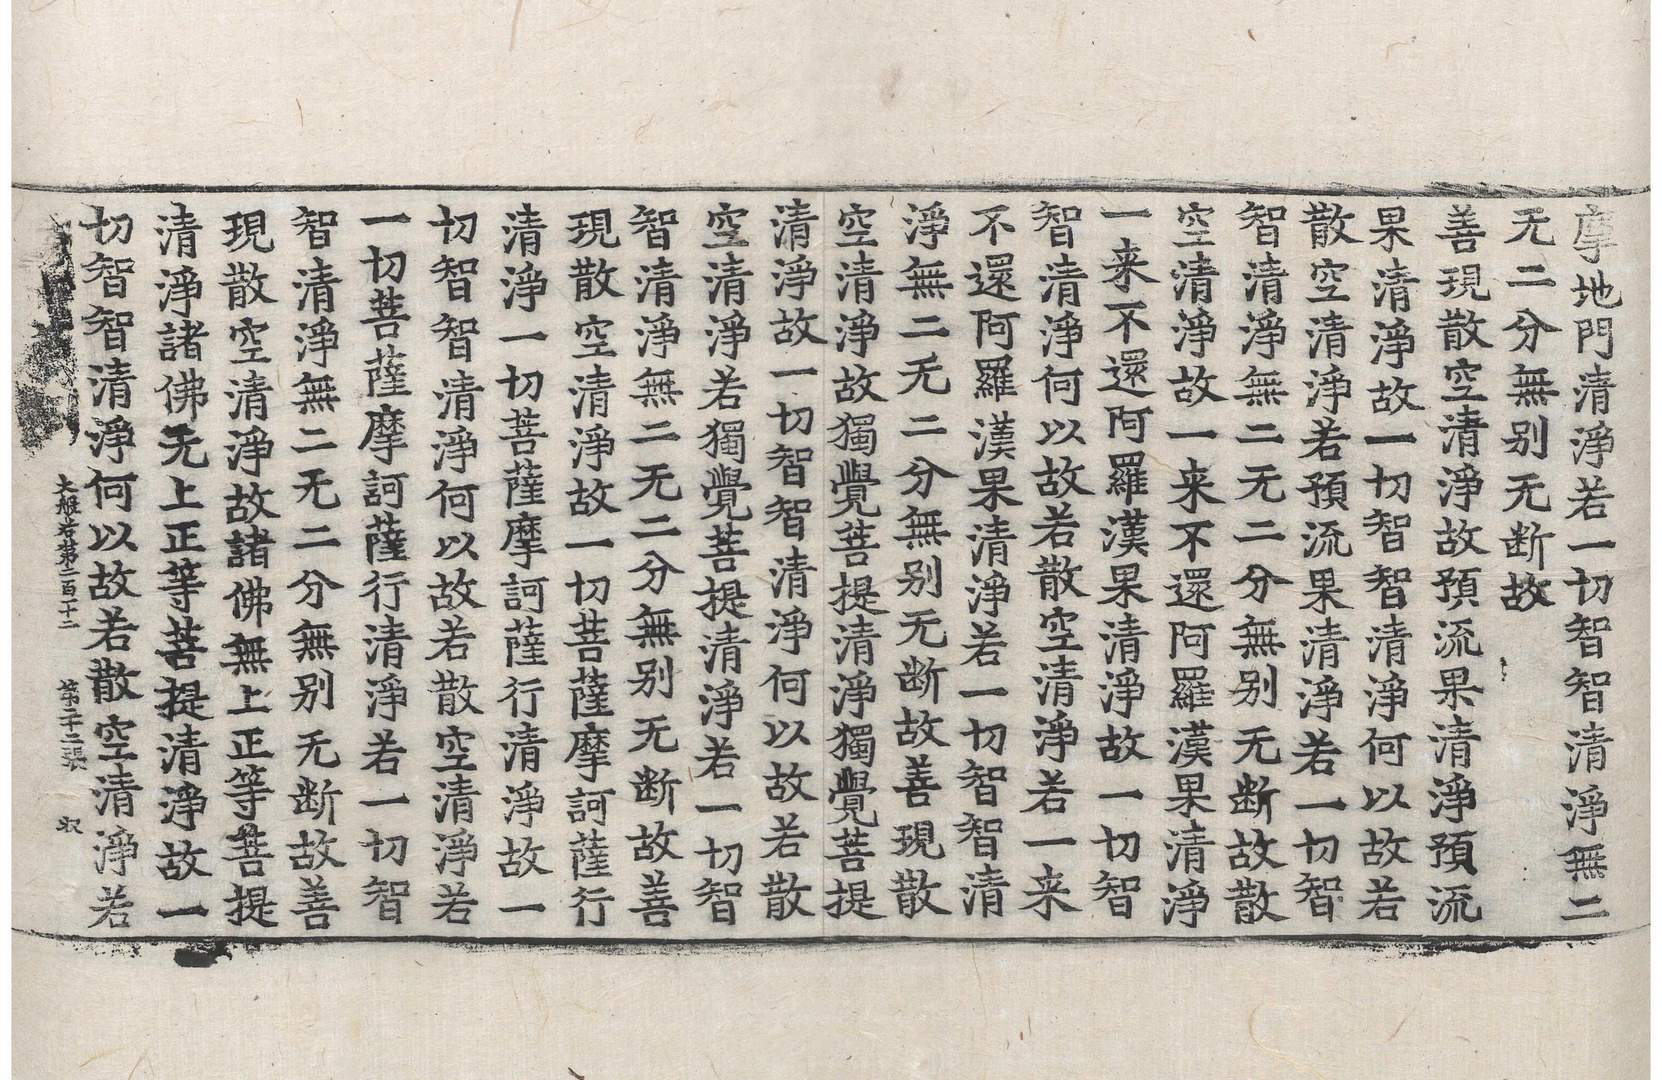 摩地門清淨若一切智智清淨無二
无二分無别无断故
善現散空清淨故預流果清淨預流
果清淨故一切智智清淨何以故若
散空清淨若預流果清淨若一切智
智清淨無二无二分無别无断故散
空清淨故一来不還阿羅漢果清淨
一来不還阿羅漢果清淨故一切智
智清淨何以故若散空清淨若一来
不還阿羅漢果清淨若一切智智清
淨無二无二分無别无断故善現散
空清淨故獨覺菩提清淨獨覺菩提
清淨故一切智智清淨何以故若散
空清淨若獨覺菩提清淨若一切智
智清淨無二无二分無别无断故善
現散空清淨故一切菩薩摩訶薩行
清淨一切菩薩摩訶薩行清淨故一
切智智清淨何以故若散空清淨若
一切菩薩摩訶薩行清淨若一切智
智清淨無二无二分無别无断故善
現散空清淨故諸佛無上正等菩提
清淨諸佛无上正等菩提清淨故一
切智智清淨何以故若散空清淨若
大般若第二百十二 第二十二張